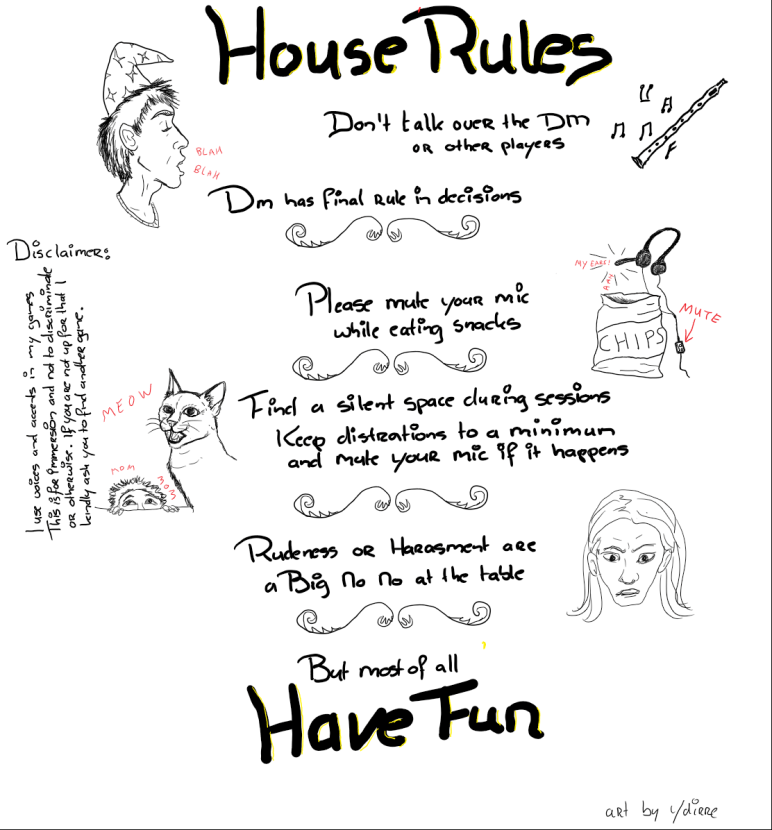 House Rules
Don't talk over the Dm
or other players
BLAH
BLAH
Dm has final rule in decisions
Disclaimer:
I use voices and accents in my games
This is for immersion and not to discriminate
or otherwise. If you are not up for that I
kindly ask you to find another game.
MY EARS!
Please mute your mic
while eating snacks
MUTE
CHIPS
MEOW
Find a silent space during sessions
Keep distrations to a minimum
and mute your mic if it happens
MOM
Rudeness or Harasment are
a Big No No at the table
But most of all
Have Fun